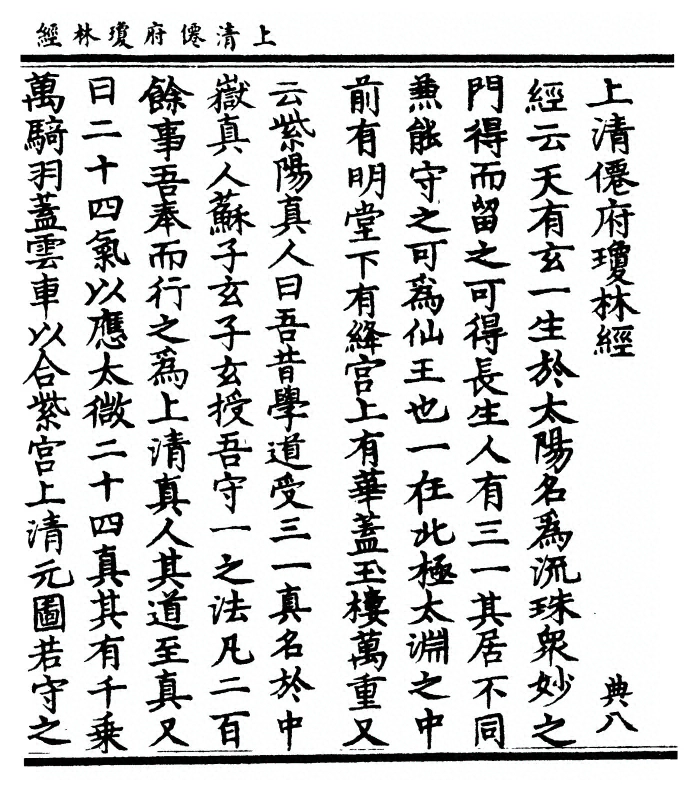 上清僊府瓊林經
上清僊府瓊林經 典八
經云天有玄一生於太陽名爲流珠衆妙之
門得而留之可得長生人有三一其居不同
兼能守之可爲仙王也一在北極太淵之中
前有明堂下有絳宮上有華蓋玉樓萬重又
云紫陽真人曰吾昔學道受三一真名於中
嶽真人蘇子玄子玄授吾守一之法凡二百
餘事吾奉而行之爲上清真人其道至真又
曰二十四氣以應太微二十四真其有千乗
萬騎羽蓋雲車以合紫宮上清元圖若守之